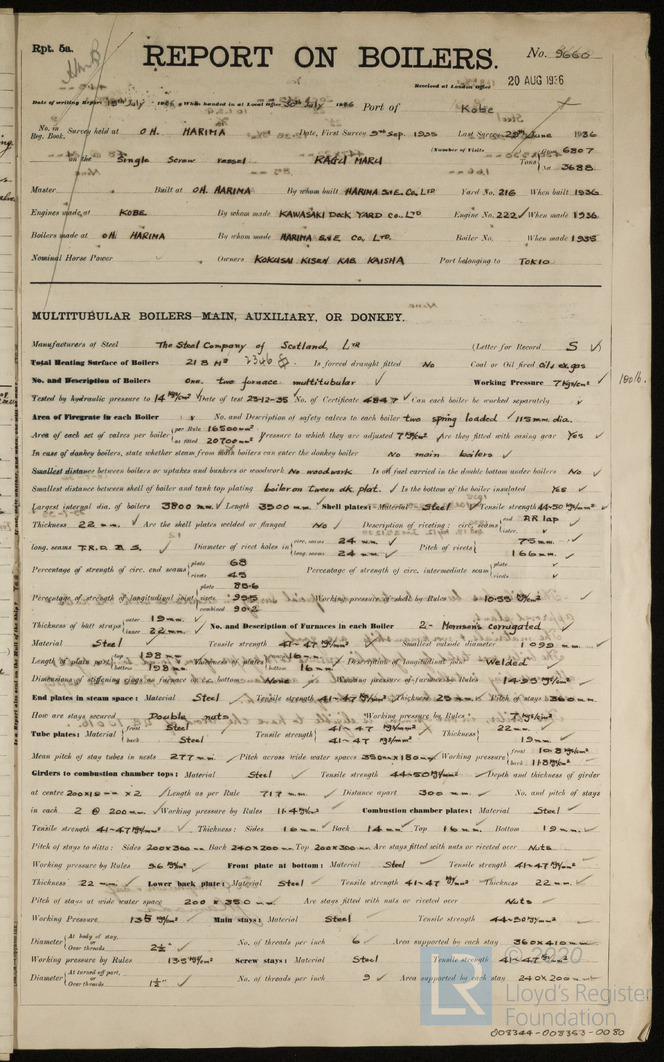 Rpt. 5a.
REPORT ON BOILERS.
No. 9660
Received at London Office 20 AUG 1936
Date of writing Report 18th July 1936 When handed in at Local Office 30th July 1936 Port of Kobe
No. in Reg. Book. Survey held at OH. HARIMA Date, First Survey 9th Sep. 1935 Last Survey 29th June 1936
(Number of Visits
on the Single Screw vessel KAGU MARU Tons Gross 6807 Net 3688
Master Built at OH. HARIMA By whom built HARIMA S&E. Co. LTD Yard No. 216 When built 1936
Engines made at KOBE By whom made KAWASAKI Dock YARD Co., LTD Engine No. 222 When made 1936
Boilers made at OH. HARIMA By whom made HARIMA S&E Co, LTD. Boiler No. When made 1935
Nominal Horse Power Owners KOKUSAI KISEN KAB. KAISHA Port belonging to TOKIO
MULTITUBULAR BOILERS MAIN, AUXILIARY, OR DONKEY.
Manufacturers of Steel The Steel Company of Scotland, LTD (Letter for Record S)
Total Heating Surface of Boilers 218 M² 2346 Is forced draught fitted No Coal or Oil fired Oil & ex. gas
No. and Description of Boilers One. two furnace multitubular Working Pressure 7 kg/cm² 100 lb.
Tested by hydraulic pressure to 14 kg/cm² Date of test 25-12-35 No. of Certificate 4847 Can each boiler be worked separately
Area of Firegrate in each Boiler No. and Description of safety valves to each boiler two spring loaded 115 mm. dia.
Area of each set of valves per boiler per Rule 16500 mm² as fitted 20700 mm² Pressure to which they are adjusted 7 kg/cm² Are they fitted with easing gear Yes
In case of donkey boilers, state whether steam from main boilers can enter the donkey boiler No main boilers
Smallest distance between boilers or uptakes and bunkers or woodwork No woodwork Is oil fuel carried in the double bottom under boilers No
Smallest distance between shell of boiler and tank top plating boiler on tween dk. plat. Is the bottom of the boiler insulated Yes
Largest internal dia. of boilers 3800 mm. Length 3500 mm. Shell plates: Material Steel Tensile strength 44-50 kg/mm²
Thickness 22 mm. Are the shell plates welded or flanged No Description of riveting: circ. seams end DR lap inter.
long. seams T.R.D.B.S. Diameter of rivet holes in circ. seams 24 mm. long. seams 24 mm. Pitch of rivets 75 mm. 166 mm.
Percentage of strength of circ. end seams plate 68 rivets 45 Percentage of strength of circ. intermediate seam plate rivets
Percentage of strength of longitudinal joint plate 85.6 rivets 95.5 combined 90.2 Working pressure of shell by Rules 10.55 kg/cm²
Thickness of butt straps outer 19 mm. inner 22 mm. No. and Description of Furnaces in each Boiler 2- Morison's corrugated
Material Steel Tensile strength 41-47 kg/mm² Smallest outside diameter 1099 mm.
Length of plain part top 198 mm bottom 198 mm Thickness of plates top 16 mm. bottom 16 mm. Description of longitudinal joint Welded
Dimensions of stiffening rings on furnace or c.c. bottom None Working pressure of furnace by Rules 14.95 kg/cm²
End plates in steam space: Material Steel Tensile strength 41-47 kg/mm² Thickness 25 mm. Pitch of stays 360 mm.
How are stays secured Double nuts Working pressure by Rules 7 kg/cm²
Tube plates: Material front Steel back Steel Tensile strength 41-47 kg/mm² 41-47 kg/mm² Thickness 22 mm. 19 mm.
Mean pitch of stay tubes in nests 277 mm. Pitch across wide water spaces 350 mm x 180 mm Working pressure front 10.8 kg/cm² back 11.8 kg/cm²
Girders to combustion chamber tops: Material Steel Tensile strength 44-50 kg/mm² Depth and thickness of girder
at centre 200 x 18 mm x 2 Length as per Rule 717 mm. Distance apart 300 mm. No. and pitch of stays
in each 2 @ 200 mm. Working pressure by Rules 11.4 kg/cm² Combustion chamber plates: Material Steel
Tensile strength 41-47 kg/mm² Thickness: Sides 16 mm. Back 14 mm. Top 16 mm. Bottom 19 mm.
Pitch of stays to ditto: Sides 200 x 300 mm. Back 240 x 200 mm. Top 200 x 300 mm. Are stays fitted with nuts or riveted over Nuts
Working pressure by Rules 9.6 kg/cm² Front plate at bottom: Material Steel Tensile strength 41-47 kg/mm²
Thickness 22 mm. Lower back plate: Material Steel Tensile strength 41-47 kg/mm² Thickness 22 mm.
Pitch of stays at wide water space 200 x 350 mm. Are stays fitted with nuts or riveted over Nuts
Working Pressure 13.5 kg/cm² Main stays: Material Steel Tensile strength 44-50 kg/mm²
Diameter At body of stay, or Over threads 2½" No. of threads per inch 6 Area supported by each stay 360 x 410 mm.
Working pressure by Rules 13.5 kg/cm² Screw stays: Material Steel Tensile strength 41-47 kg/mm²
Diameter At turned off part, or Over threads 1½" No. of threads per inch 9 Area supported by each stay 240 x 200 mm
© 2020
LR
Lloyd's Register
Foundation
008344-008353-0080